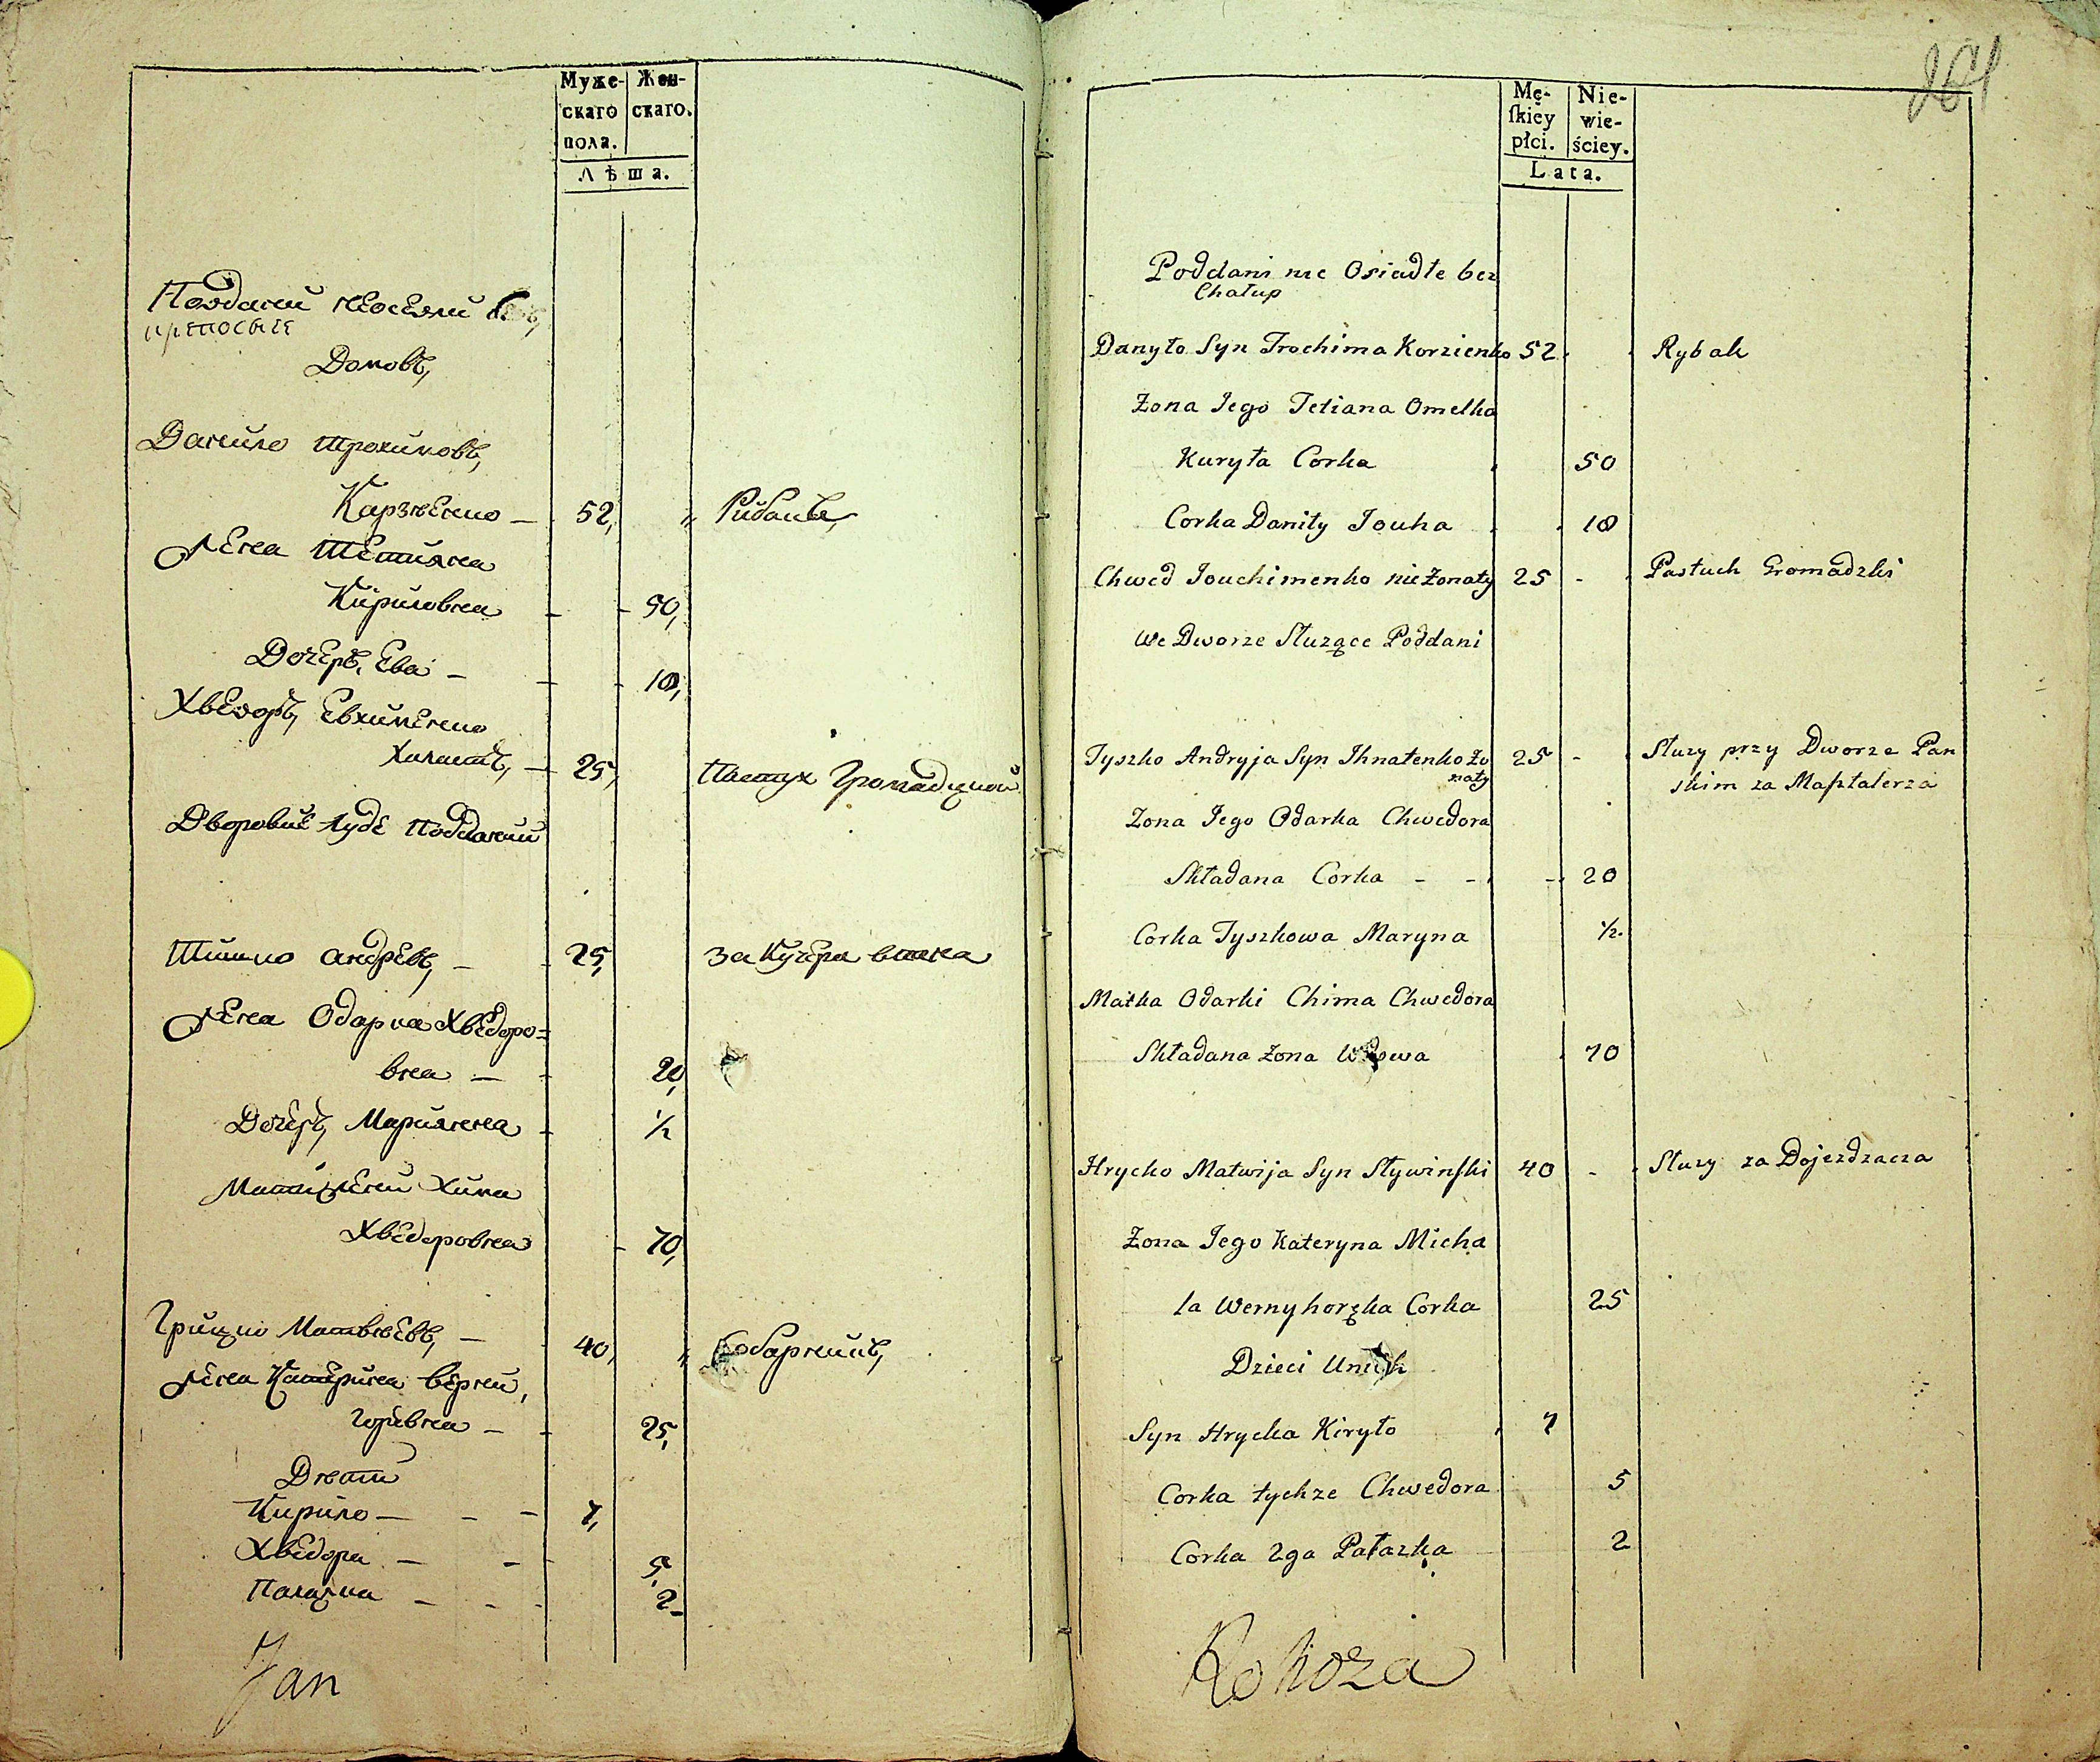 Муже-
скаго
пола.
Жен-
скаго.
Лѣта.
Поддании неосели безъ
крепосние
Домовъ,
Данило Трохимовъ,
Карзѣенко — 52, „ Рибакъ,
Жена Тетияна
Кириловна - - 50,
Дочеръ, Ева - - - 10,
Хведоръ, Евхименко
Холостъ, - 25, Пастух Громадцкой
Дворовие люде Поддании
Тишко Андрѣевъ, - - 25, за Кучера
Жена Одарка Хведоро=
вна — - 20,
Дочеръ, Марияна - ½
Хима
Хведоровна - 70,
Грицко Матвѣевъ, — 40, „
Жена Катерина Верни,
горивна - - 25,
Дѣти
Кирило — - - 7,
Хведора — - 5,
Палажка - - - 2-
Jan
264
Mę-
ſkiey
płci.
Nie-
wie-
ściey.
Lata.
Poddani nie Osiadłe bez
Chałup
Danyło Syn Trochima Korzienko 52. Rybak
Zona Jego Tetiana Omelka
Kuryła Corka 50
Corka Daniły Jouha 10
Chwed Jouchimenko nieżonaty 25 - Pastuch Gromadzki
We Dworze Służące Poddani
Tyszko Andryja Syn Ihnatenko żo 25 - Służy przy Dworze Pan
naty skim za Masztalerza
Zona Jego Odarka Chwedora
Składana Corka - - - 20
Corka Tyszkowa Maryna ½.
Matka Odarki Chima Chwedora
Składana żona Wdowa 70
Hrycko Matwija Syn Sływinſki 40 - Służy za Dojezdzacza
Zona Jego Kateryna Micha
la Wernyhorążka Corka 25
Dzieci Unich
Syn Hrycka Kiryło 7
Corka tychze Chwedora 5
Corka 2ga Pałazka 2
Rohoza